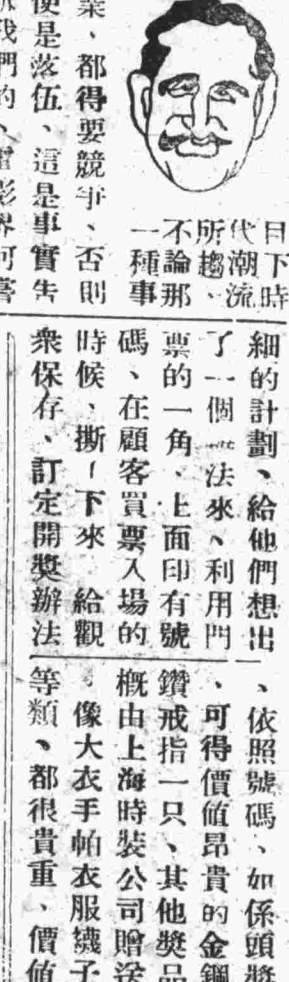 目下時
代潮流
所趨、
不論那
一種事
業、都得要競爭、否則
便是落伍、這是事實告
訴我們的、電影界何嘗
細的計劃、給他們想出
了一個 法來、利用門
票的一角、上面印有號
碼、在顧客買票入場的
時候、撕 下來 給觀
衆保存、訂定開獎辦法
、依照號碼、如係頭獎
、可得價値昂貴的金鋼
鑽戒指一只、其他獎品
槪由上海時裝公司贈送
、像大衣手帕衣服襪子
等類、都很貴重、價値